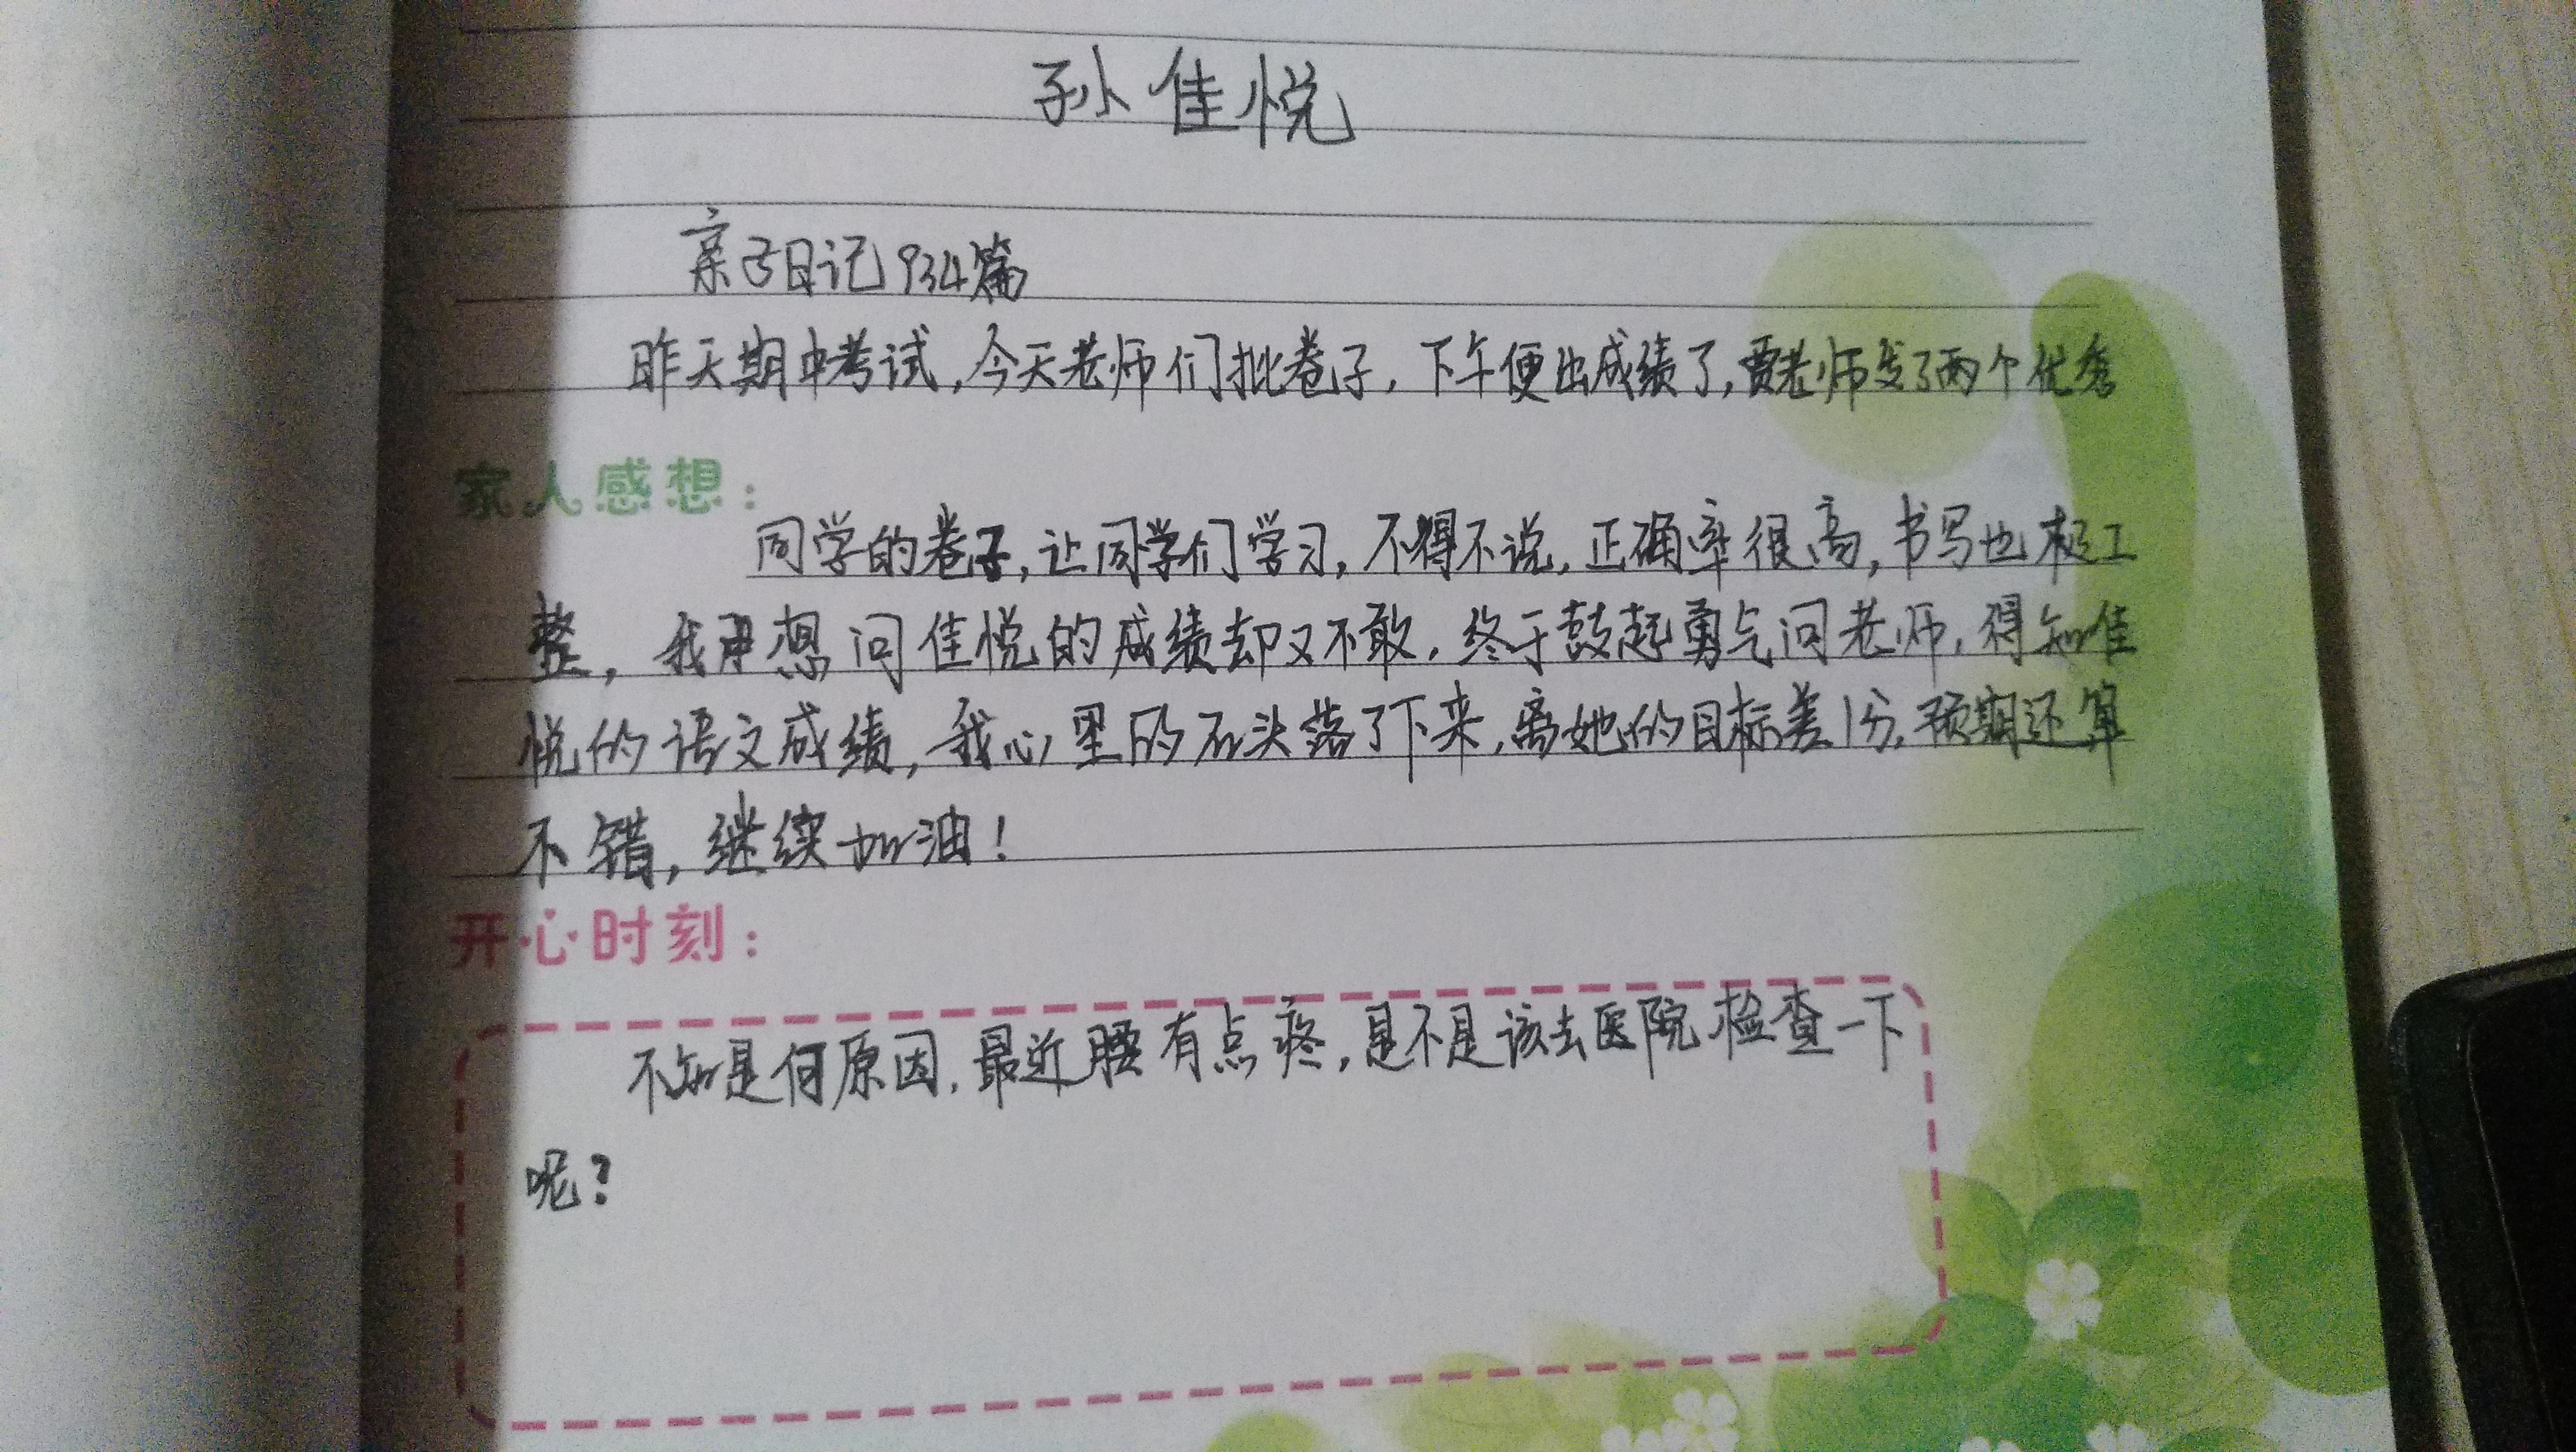 孙佳悦
亲子日记934篇
昨天期中考试,今天老师们批卷子,下午便出成绩了,贾老师发了两个优秀
家人感想:
同学的卷子,让同学们学习,不得不说,正确率很高,书写也极工
整,我想问佳悦的成绩却又不敢,终于鼓起勇气问老师,得知佳
悦的语文成绩,我心里的石头落了下来,离她的目标差1分,预期还算
不错,继续加油!
开心时刻:
不知是何原因,最近腰有点疼,是不是该去医院检查一下
呢?